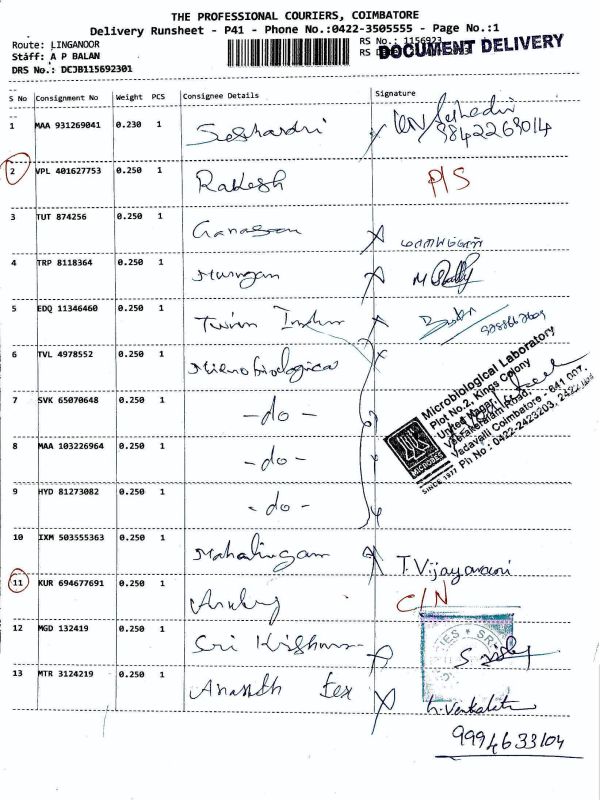 THE PROFESSIONAL COURIERS, COIMBATORE
Delivery Runsheet - P41 - Phone No.:0422-3505555 - Page No.:1
Route: LINGANOOR RS No.: 1156923
Staff: A P BALAN RS DOCUMENT DELIVERY
DRS No.: DCJB115692301
S No Consignment No Weight PCS Consignee Details Signature
1 MAA 931269041 0.230 1 Seshardri
9842269014
2 VPL 401627753 0.250 1 Rakesh P/S
3 TUT 874256 0.250 1 Ganason
4 TRP 8118364 0.250 1 Murugan
5 EDQ 11346460 0.250 1 Twin
6 TVL 4978552 0.250 1 Microbiological
7 SVK 65070648 0.250 1 - do -
8 MAA 103226964 0.250 1 - do -
9 HYD 81273082 0.250 1 - do -
Microbiological Laboratory
Plot No.2, Kings Colony
United Nagar,
Veerakeralam Road,
Vadavalli Coimbatore - 641 007.
Ph No : 0422-2423203,
MICROBES
SINCE 1977
10 IXM 503555363 0.250 1 Mahalingam T. Vijayarani
11 KUR 694677691 0.250 1 C/N
12 MGD 132419 0.250 1 Sri Krishna
13 MTR 3124219 0.250 1 Anandh tex
9994633104